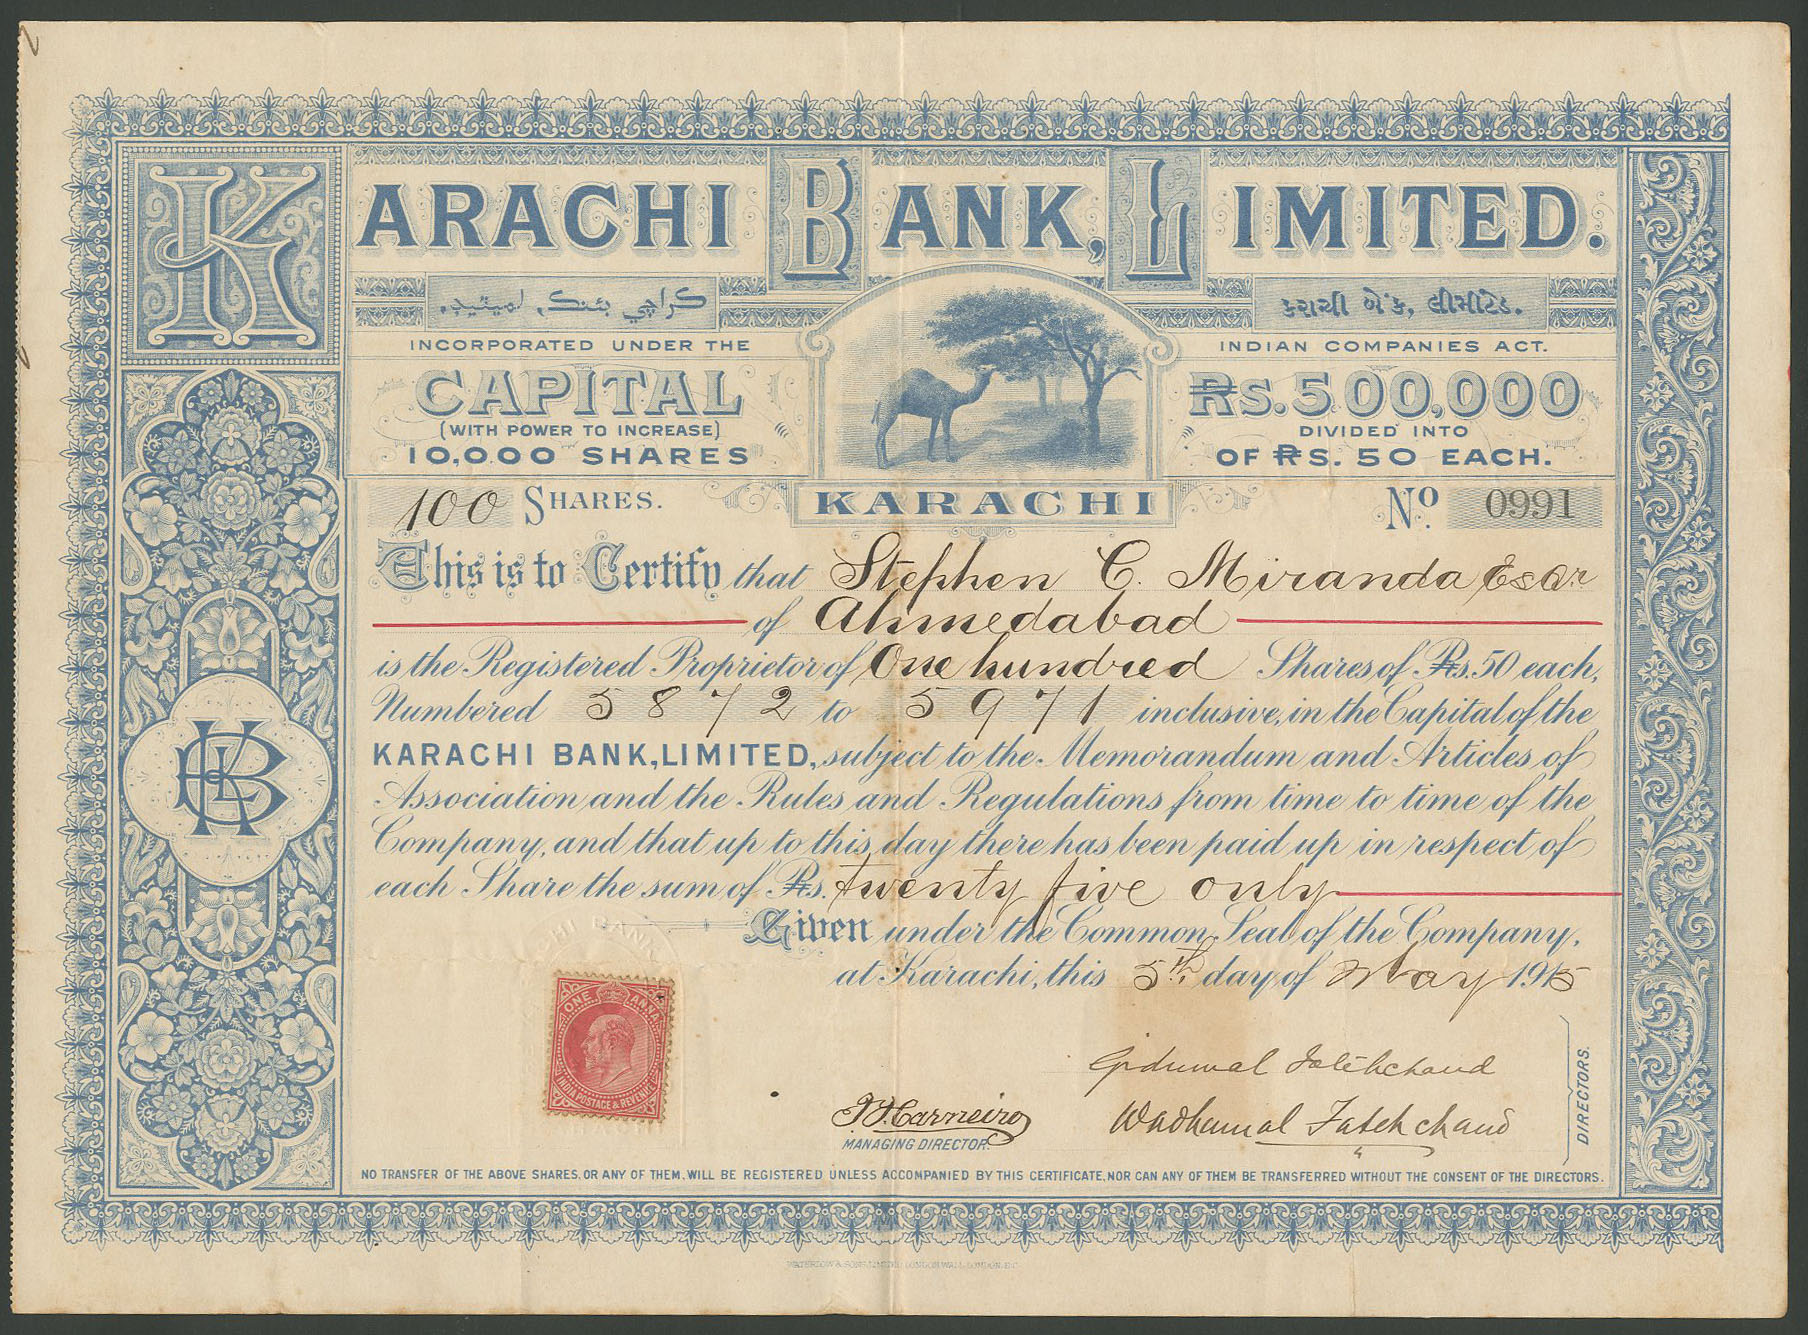 KARACHI BANK, LIMITED.
ڪراچي بئنڪ, لميٽيڊ.
કરાચી બેંક, લીમીટેડ.
INCORPORATED UNDER THE INDIAN COMPANIES ACT.
CAPITAL Rs. 500,000
(WITH POWER TO INCREASE) DIVIDED INTO
10,000 SHARES OF Rs. 50 EACH.
100 SHARES. KARACHI No. 0991
This is to Certify that Stephen C. Miranda Esqr
of Ahmedabad
is the Registered Proprietor of One hundred Shares of Rs. 50 each,
Numbered 5872 to 5971 inclusive, in the Capital of the
KARACHI BANK, LIMITED, subject to the Memorandum and Articles of
Association and the Rules and Regulations from time to time of the
Company, and that up to this day there has been paid up in respect of
each Share the sum of Rs. twenty five only
Given under the Common Seal of the Company,
at Karachi, this 5th day of May 1915
KBL
ONE ANNA
INDIA POSTAGE & REVENUE
Gidumal Fatehchand
Wadhumal Fatehchand
DIRECTORS.
Carneiro
MANAGING DIRECTOR.
NO TRANSFER OF THE ABOVE SHARES, OR ANY OF THEM, WILL BE REGISTERED UNLESS ACCOMPANIED BY THIS CERTIFICATE, NOR CAN ANY OF THEM BE TRANSFERRED WITHOUT THE CONSENT OF THE DIRECTORS.
WATERLOW & SONS LIMITED, LONDON WALL, LONDON, E.C.